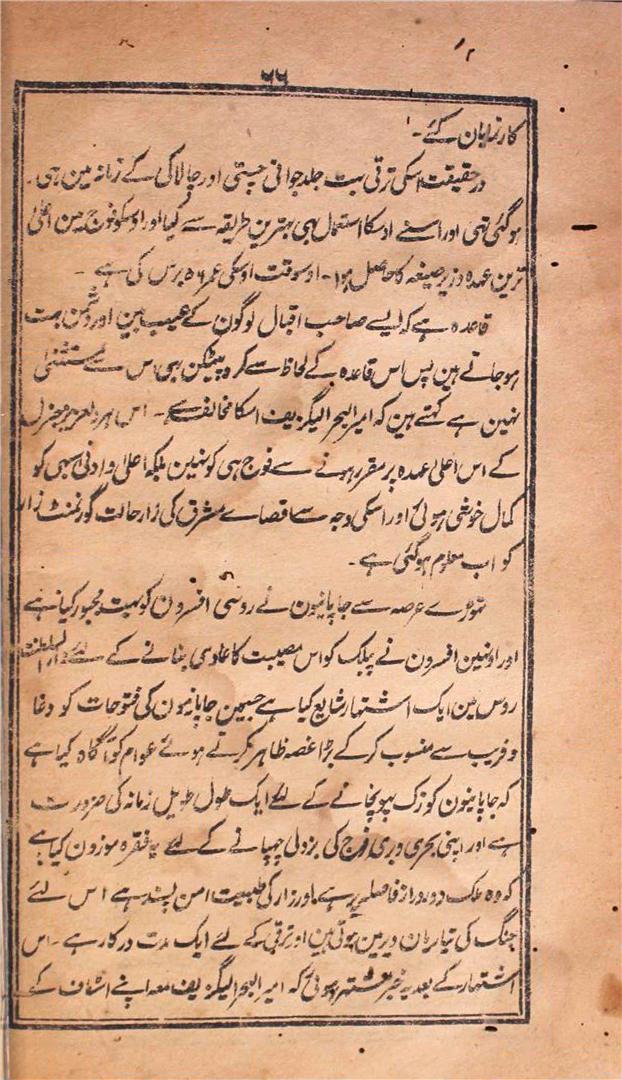 ۶۶
کارنمایان کئے۔
درحقیقت اسکی ترقی بہت جلد جوانی چستی اور چالاکی کے زمانہ مین ہی۔
ہوگئی تہی اور اسنے اوسکا استعمال بہی بہترین طریقہ سے کیا اور اوسکو فوج مین اعلیٰ
ترین عہدہ وزیر صیغہ کا حاصل ہوا۔ اوسوقت اوسکی عمر ۵۶ برس کی ہے۔
قاعدہ ہے کہ ایسے صاحب اقبال لوگون کے عیب بین اور دشمن بہت
ہوجاتے ہین پس اس قاعدہ کے لحاظ سے کروپٹکن بہی اس سے مستثنیٰ
نہین ہے کہتے ہین کہ امیر البحر الیگزیف اسکا مخالف ہے۔ اس ہردلعزیز جنرل
کے اس اعلیٰ عہدہ پر مقرر ہونے سے فوج ہی کو نہین بلکہ اعلیٰ و ادنیٰ سبہی کو
کمال خوشی ہوئی اور اسکی وجہ سے اقصاے مشرق کی زار حالت گورنمنٹ زار
کو اب معلوم ہوگئی ہے۔
تہوڑے عرصہ سے جاپانیون نے روسی افسرون کو بہت مجبور کیا ہے
اور اونہین افسرون نے پبلک کو اس مصیبت کا عادی بنانے کے لئے دارالسلطنت
روس مین ایک اشتہار شایع کیا ہے جسمین جاپانیون کی فتوحات کو دغا
و فریب سے منسوب کرکے بڑا غصہ ظاہر کرتے ہوئے عوام کو آگاہ کیا ہے
کہ جاپانیون کو زک پہونچانے کے لئے ایک طول طویل زمانہ کی ضرورت
ہے اور اپنی بحری و بری فوج کی بزدلی چہپانے کے لئے یہ فقرہ موزون کیا ہے
کہ وہ ملک دور دراز فاصلہ پر ہے اور زار کی طبیعت امن پسند ہے اس لئے
جنگ کی تیاریان دیر مین ہوتی ہین اور ترقی کے لئے ایک مدت درکار ہے۔ اس
اشتہار کے بعد یہ خبر مشتہر ہوئی کہ امیر البحر الیگزیف معہ اپنے اسٹاف کے